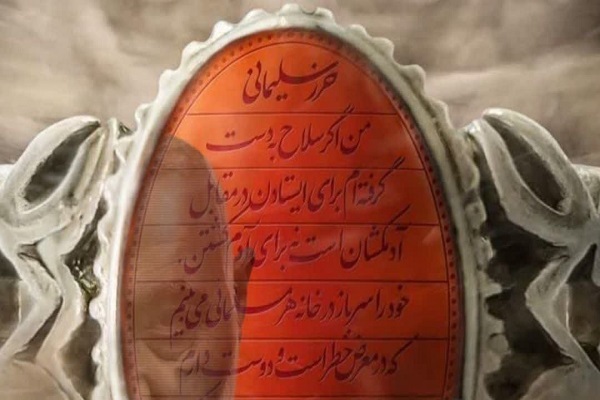 حرز سلیمانی
من اگر سلاح به دست
گرفته‌ام برای ایستادن در مقابل
آدمکشان است نه برای آدم کشتن.
خود را سرباز در خانه هر مسلمانی می‌بینم
که در معرض خطر است و دوست دارم